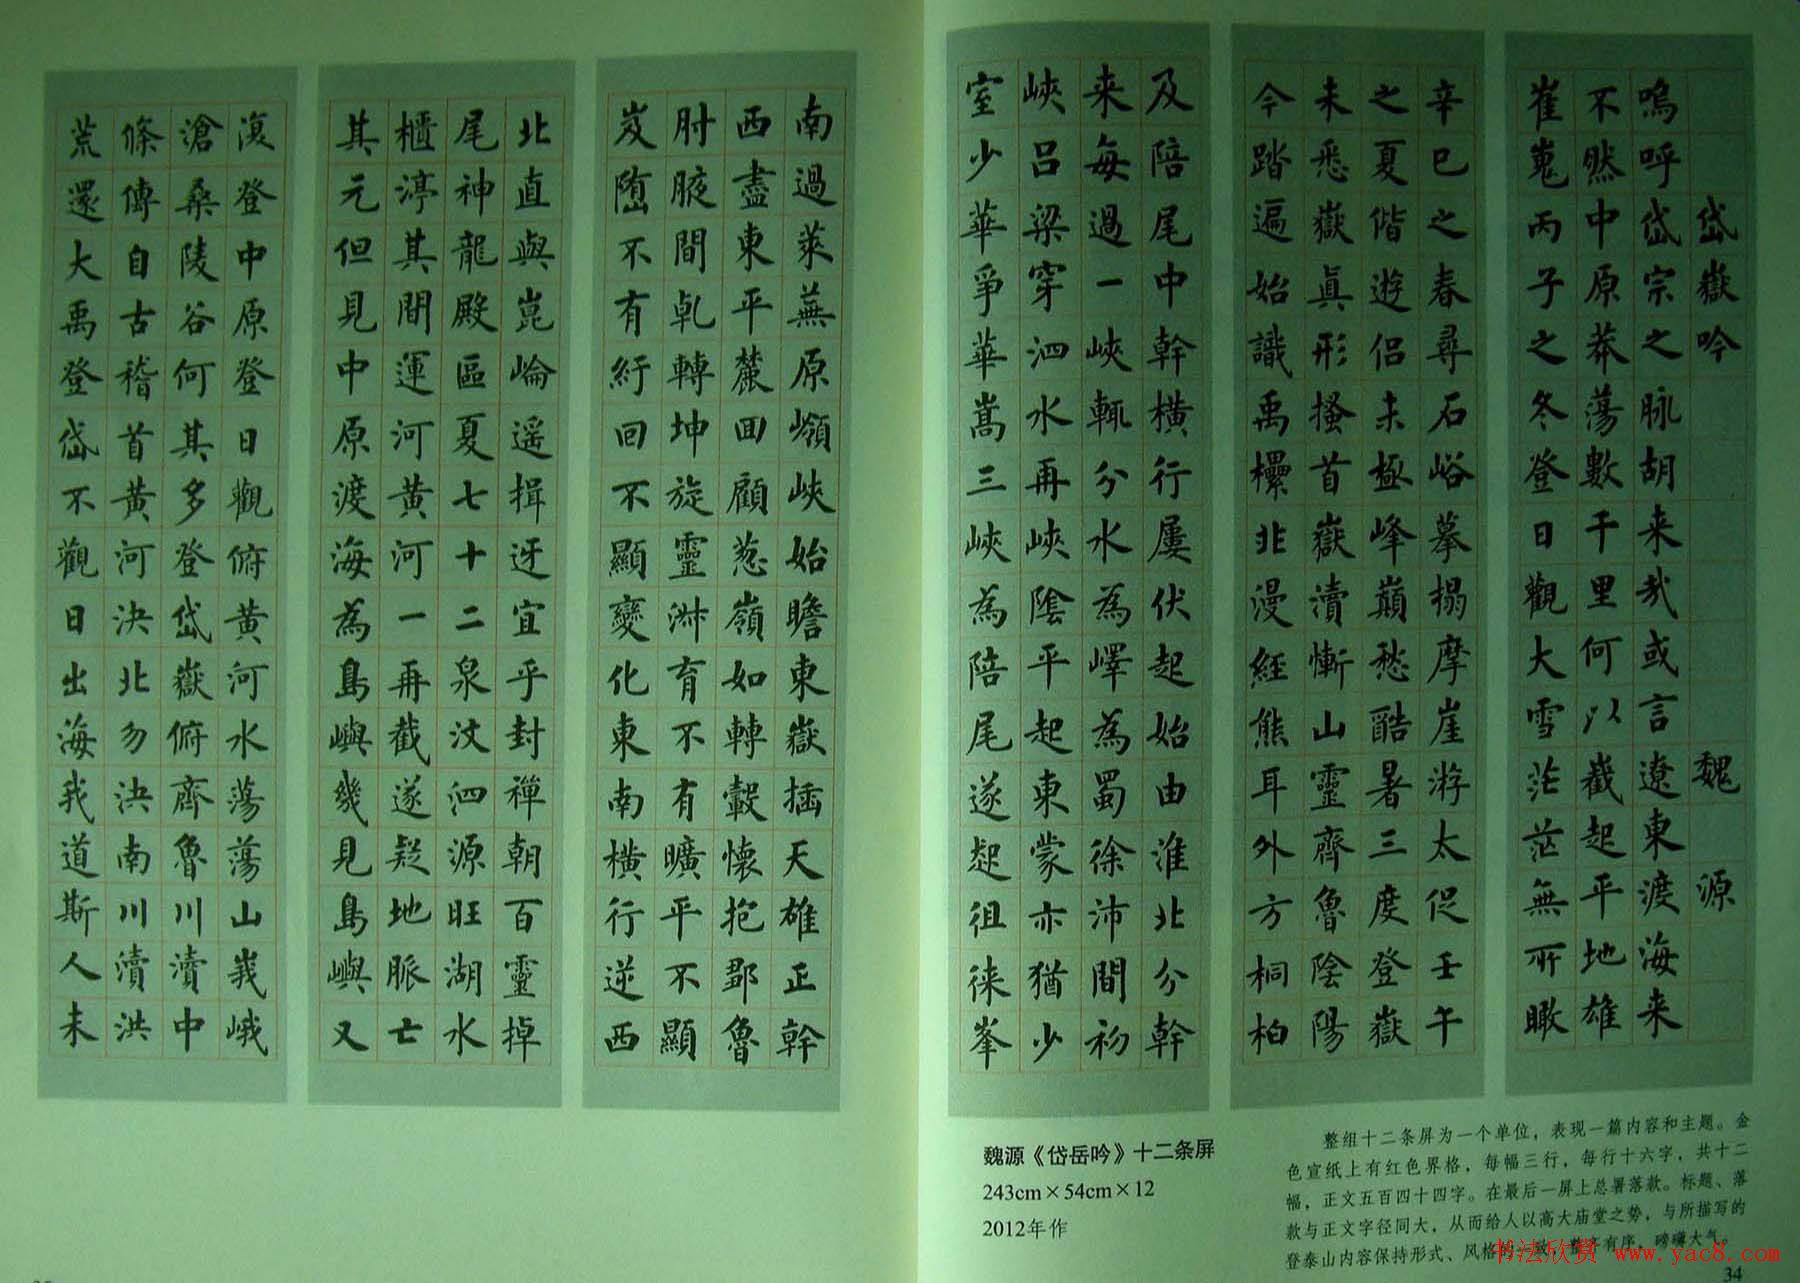 岱嶽吟 魏源
嗚呼岱宗之脉胡来哉或言遼東渡海来
不然中原莽蕩數千里何以截起平地雄
崔嵬丙子之冬登日觀大雪茫茫無所瞰
辛巳之春尋石峪摹搨摩崖游太促壬午
之夏偕遊侣未極峰巔愁酷暑三度登嶽
未悉嶽真形搔首嶽瀆慚山靈齊魯陰陽
今踏遍始識禹欙非漫經熊耳外方桐柏
及陪尾中幹横行屢伏起始由淮北分幹
来每過一峽輒分水為嶧為蜀徐沛間初
峽吕梁穿泗水再峽陰平起東蒙亦猶少
室少華爭華嵩三峽為陪尾遂起徂徠峯
南過萊蕪原嶺峽始瞻東嶽插天雄正幹
西盡東平麓回顧葱嶺如轉轂懷抱鄒魯
肘腋間乹轉坤旋靈淋育不有曠平不顯
岌嶞不有紆回不顯變化東南横行逆西
北直與崑崙遥揖迓宜乎封禪朝百靈掉
尾神龍殿區夏七十二泉汶泗源旺湖水
櫃渟其間運河黄河一再截遂疑地脈亡
其元但見中原渡海為島嶼幾見島嶼又
渡登中原登日觀俯黄河水蕩蕩山峩峨
滄桑陵谷何其多登岱嶽俯齊魯川瀆中
條傳自古稽首黄河決北勿決南川瀆洪
荒還大禹登岱不觀日出海我道斯人未
魏源《岱岳吟》十二条屏
243cm×54cm×12
2012年作
整组十二条屏为一个单位，表现一篇内容和主题。金
色宣纸上有红色界格，每幅三行，每行十六字，共十二
幅，正文五百四十四字。在最后一屏上总署落款。标题、落
款与正文字径同大，从而给人以高大庙堂之势，与所描写的
登泰山内容保持形式、风格的一致，整齐有序，磅礴大气。
书法欣赏 www.yac8.com
34